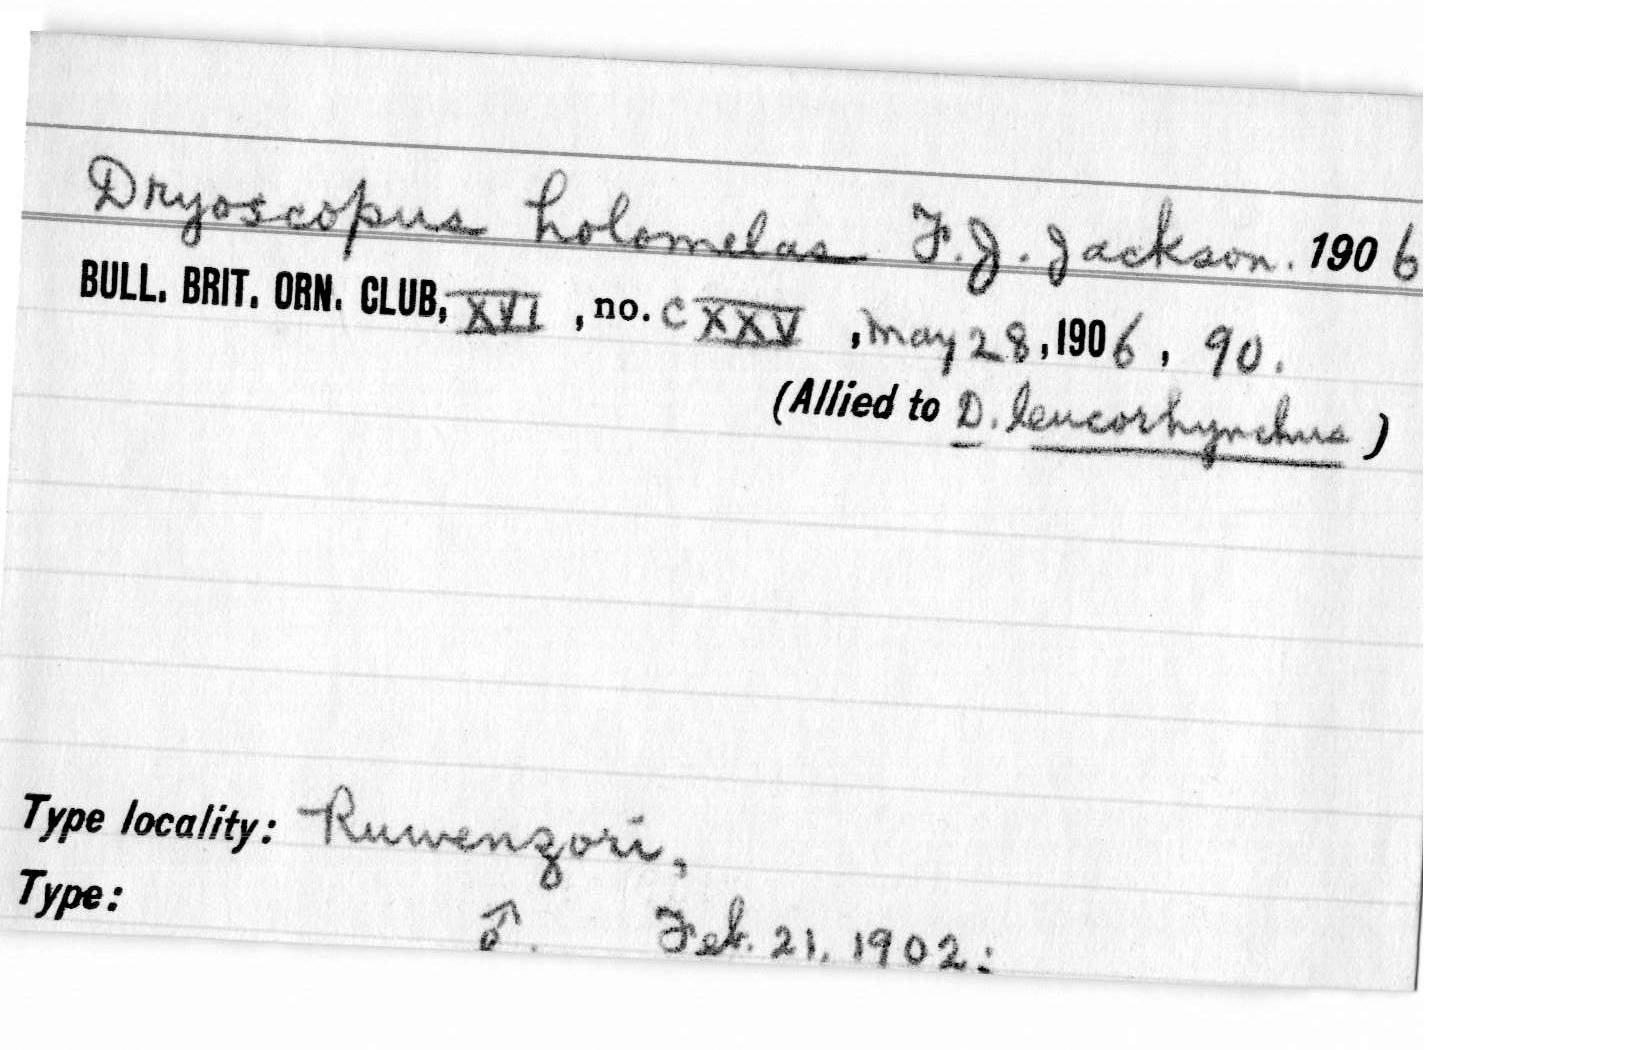 Dryoscopus holomelas F.J. Jackson. 1906
BULL. BRIT. ORN. CLUB, XVI , no. CXXV , May 28, 1906, 90.
(Allied to D. leucorhynchus )
Type locality: Ruwenzori,
Type:
♂. Feb. 21, 1902: